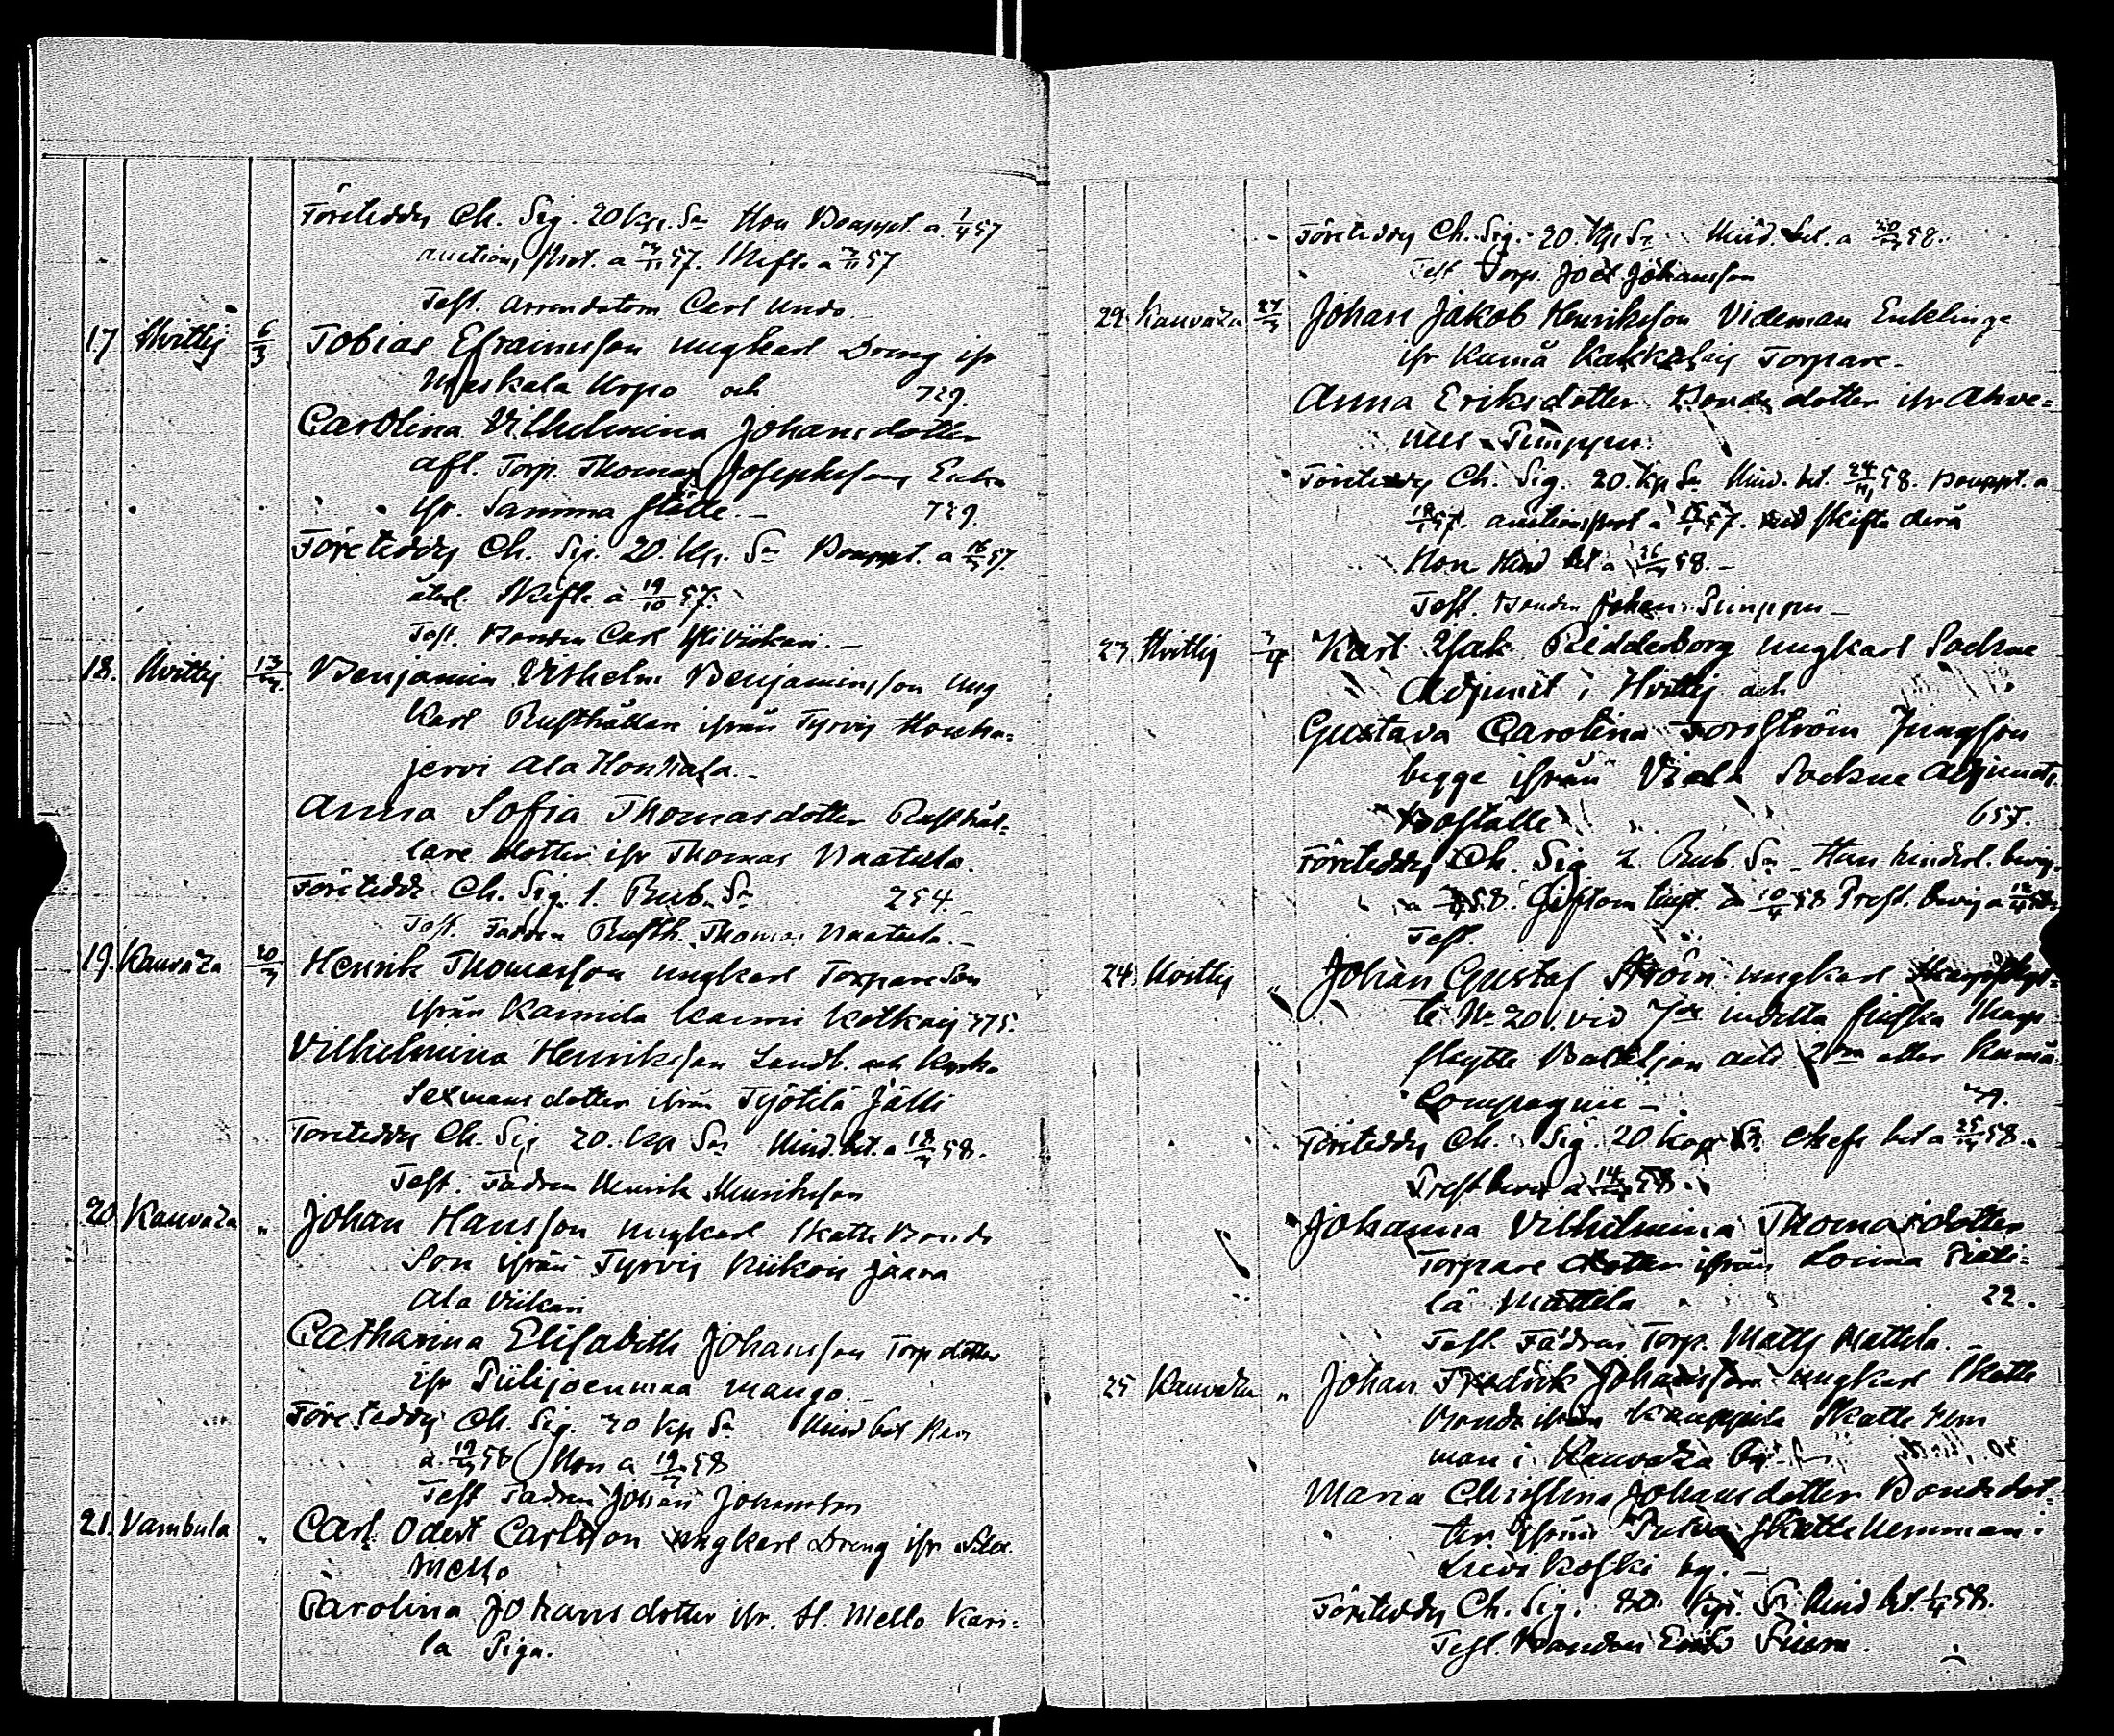 Företeddes Ch. Sig. 20 kp. Sr Hon Bouppt. a 7/4 57
auctions prot. a 57. Skifte a 57
Test. Arrendatorn Carl Unds
17 Hvittis 6/3 Tobias Efraimsson ungkarl Dreng ifr
Maskala Urpo och 729.
Carolina Vilhelmina Johansdotter
afl. Torp. Thomas Josephsons Enka
ifr. Samma ställe. 729.
Företeddes Ch. Sig. 20. Kp. Sr Bouppt. a 57
Skifte a 19/10 57.
Test. Bonden Carl
18. Hvittis 13/3. Benjamin Vilhelm Benjaminsson ung
karl Rusthållare ifrån Tyrvis Houha=
jervi Ala Honkala.
Anna Sofia Thomasdotter Rusthål=
lare dotter ifr Thomas Naatula.
Företedde Ch. Sig. 1. Rub. Sr 254.
Test. Fadren Rusth. Thomas Naatula.
19. Kauvatza 20/3 Henrik Thomasson ungkarl Torpare Son
ifrån Karimila Karmi Kotkais 375.
Vilhelmina Henriksson Landb. och Kyrko
Sexmans dotter ifrån Työtilä Jälli
Företeddes Ch. Sig 20. Kp Sr Hind. bet. a 58.
Test. Fadren Henrik Henriksson
20. Kauvatza " Johan Hansson ungkarl Skatte Bonde
Son ifrån Tyrvis Kiikois Jaara
Ala Viikari
Catharina Elisabeth Johansson Torp dotter
ifr Piilijoenmaa mango.
Företeddes Ch. Sig. 20 kp Sr Hind bet Han
a. 19/3 58 Hon a 19/3 58
Test Fadren Johan Johansson
21. Vambula " Carl Odert Carlsson ungkarl Dreng ifr
Mello
Carolina Johansdotter ifr. St. Mello Kari=
la Piga.
Företeddes Ch. Sig. 20. Kp Sr Hind. bet. a 20/3 58.
Test Torp. Joel Johansson
22. Kauvatza 27/3 Johan Jakob Henriksson Videman Enklinge
ifr Kumå Kakkulais Torpare.
Anna Eriksdotter Bonde dotter ifr Ahve=
nus Pimppu.
Företeddes Ch. Sig. 20. Kp Sr Hind. bet. 24/3 58. Bouppt. a
57. auctions prot a 57. Skifte derå
Hon Hind bet a 58.
Test. Bonden Johan Pimppu
23. Hvittis 3/4 Karl Isak Ridderborg ungkarl Sockne
Adjunct i Hvittis och
Gustava Carolina Forsström Jungfru
begge ifrån Viala Sockne Adjuncts
Boställe 657.
Företeddes Ch. Sig 2. Rub. Sr Han hindersl. bevis
a 58. Giftom tillst. a 10/4 58 Prest. bevis a 58
Test.
24. Hvittis " Johan Gustaf Ström ungkarl
te No 20. vid 7de indelta finska Skarp
skytte Bataljon och 2dra eller Kumå
Compagnie 79.
Företeddes Ch. Sig. 20 kop Sr. Chefs bet a 25/3 58.
Prest bevis a 14/ 58.
Johanna Vilhelmina Thomasdotter
Torpare dotter ifrån Loima Pieli=
lä Mattila 22.
Test. Fadren Torp. Matts Mattila.
25 Kauvatza " Johan Fredrik Johansson ungkarl Skatte
Bonde ifrån Kauppila Skatte Hem
man i Kauvatza By
Maria Christina Johansdotter Bondedot=
ter ifrån Skatte Hemman i
Lievikoski by.
Företeddes Ch. Sig. 20. Kp. Sr Hind bet. 58.
Test. Bonden Erik